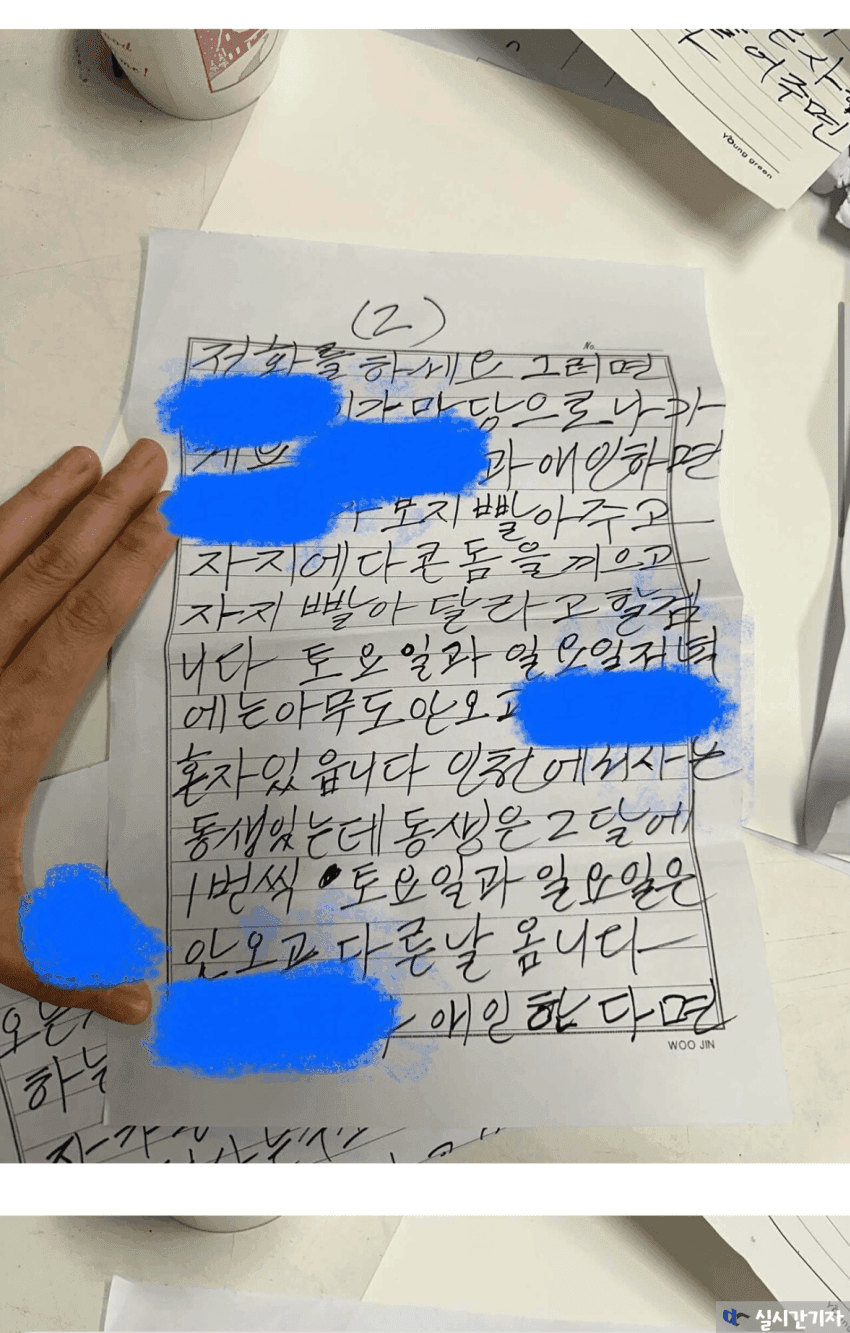 young green
(2)
No.
저화를 하세요 그러면
가 마당으로 나가
과 애인하면
보지 빨아주고
자지에다 콘돔을 끼우고
자지 빨아 달라고 할겁
니다 토요일과 일요일저녁
에는 아무도 안오고
혼자 있읍니다 인천에서 사는
동생있는데 동생은 2달에
1번씩 토요일과 일요일은
안오고 다른날 옵니다
애인한다면
WOO JIN
하는
실시간기자